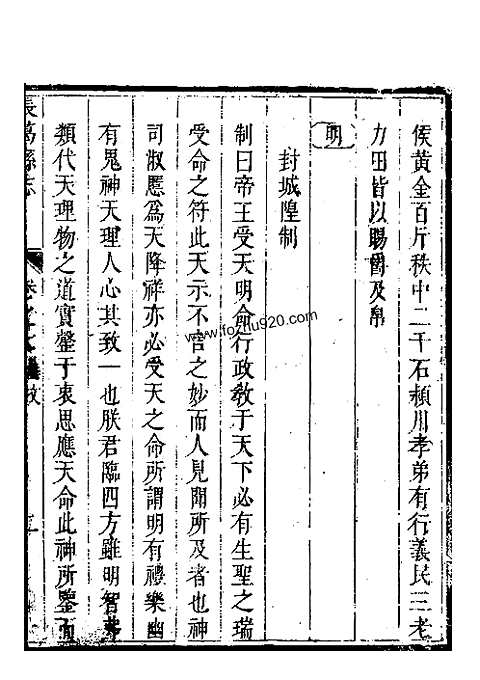 侯黃金百斤秩中二千石潁川孝弟有行義民三老
力田皆以賜爵及帛
明
封城隍制
制曰帝王受天明命行政教于天下必有生聖之瑞
受命之符此天示不言之妙而人見聞所及者也神
司淑慝為天降祥亦必受天之命所謂明有禮樂幽
有鬼神天理人心其致一也朕君臨四方雖明智弗
類代天理物之道實罄于衷思應天命此神所鑒而
長葛縣志
卷之
www.fozhu920.com